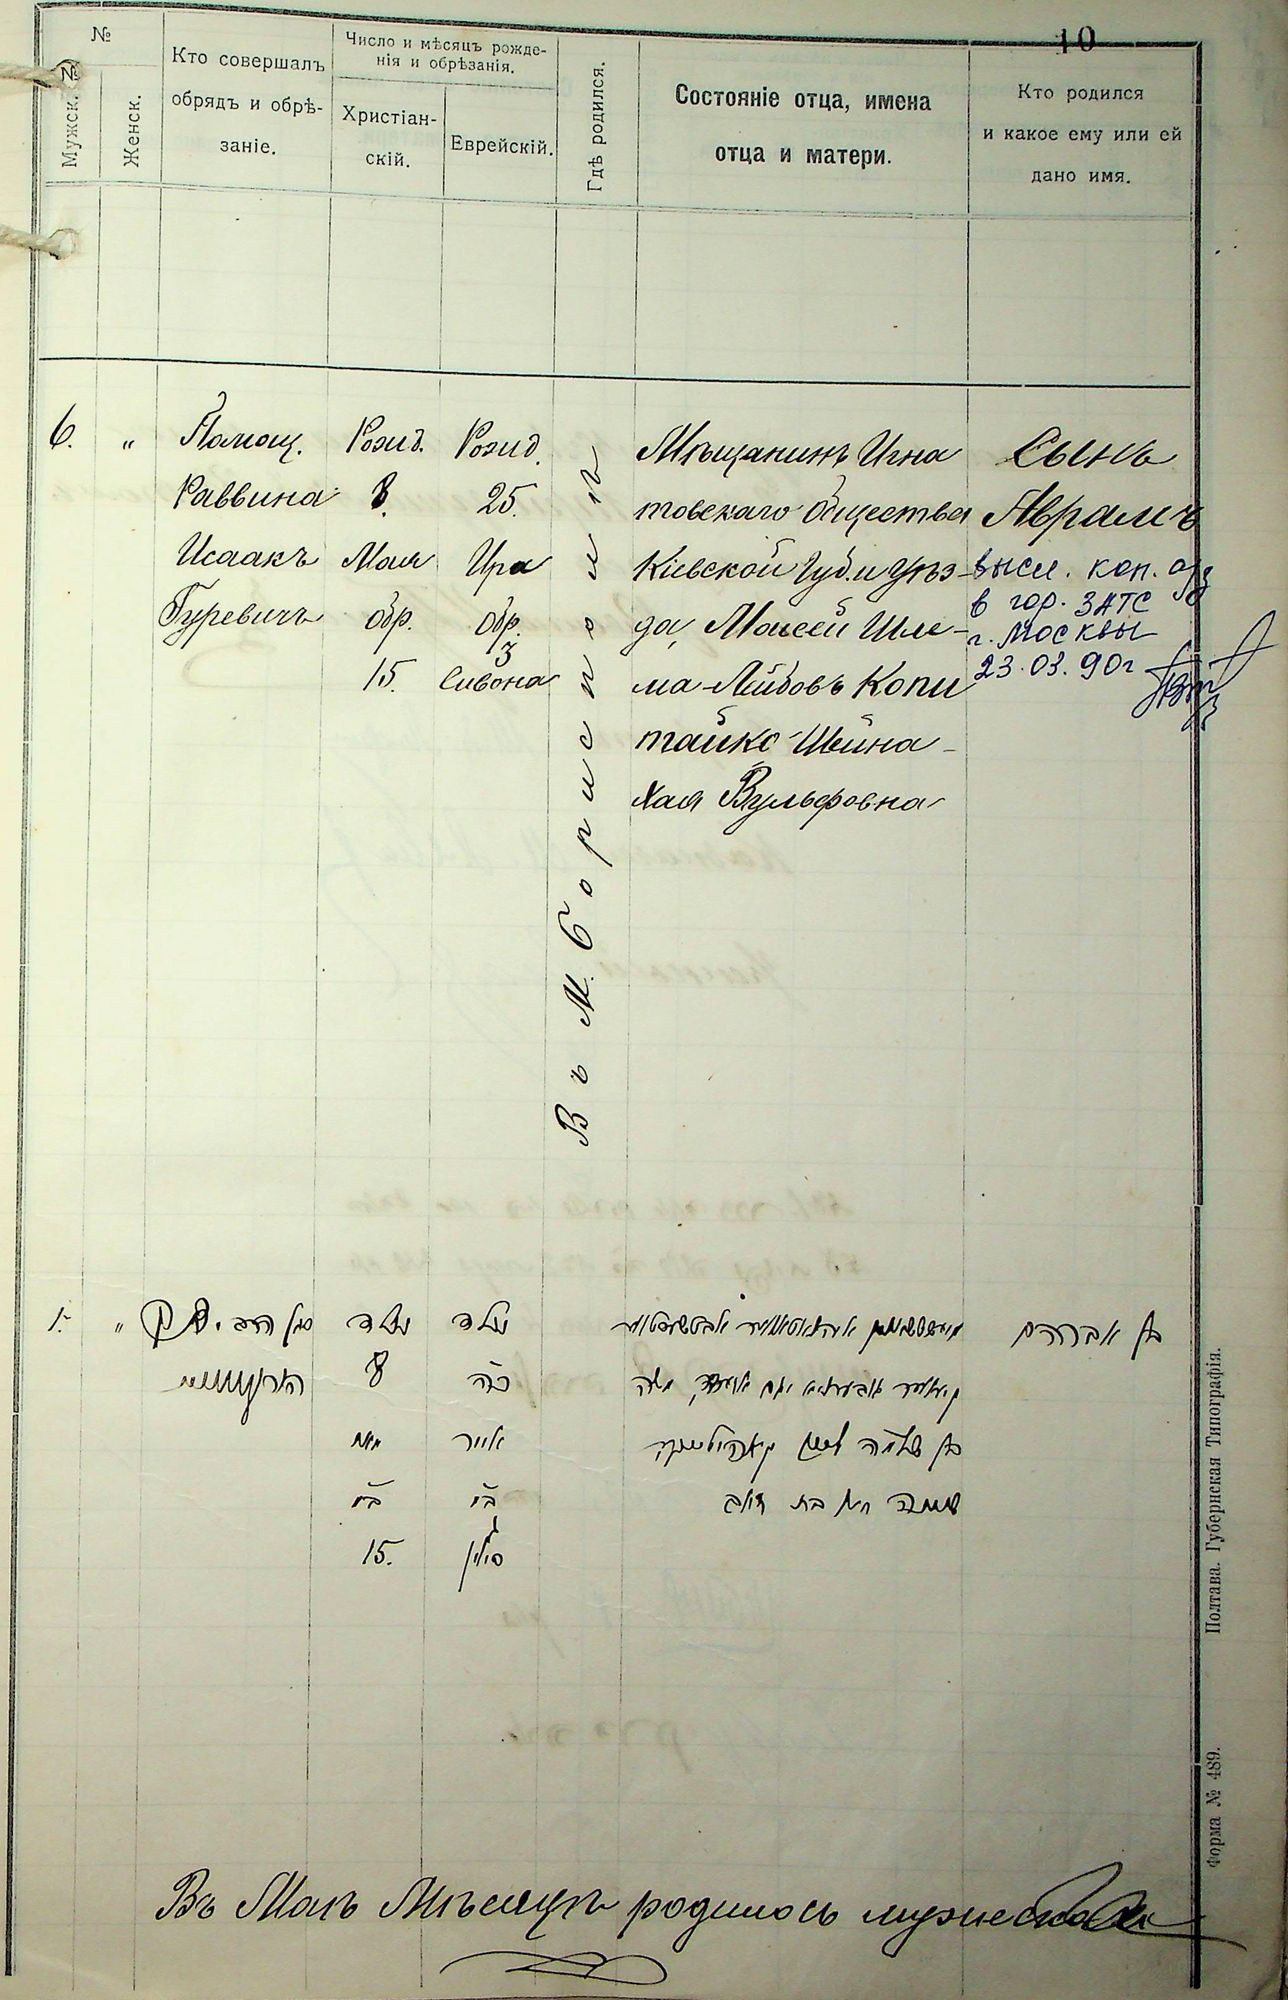 10
№
№
Мужск.
Женск.
Кто совершалъ
обрядъ и обрѣ-
заніе.
Число и мѣсяцъ рожде-
нія и обрѣзанія.
Христіан-
скій.
Еврейскій.
Гдѣ родился.
Состояніе отца, имена
отца и матери.
Кто родился
и какое ему или ей
дано имя.
6.
"
Помощ.
Раввина
Исаакъ
Гуревичъ
Рожд.
8.
Мая
обр.
15.
Рожд.
25.
Ира
Обр.
3
Сивона
Въ М. Борисполѣ
Мѣщанинъ Игна
товскаго Общества
Кіевской Губ. и уѣз-
да, Моисей Шле-
ма-Лейбовъ Копи
тайко Шейна-
Хая Вульфовна
Сынъ
Аврамъ
высл. коп.
в гор. ЗАГС
г. Москвы
23.03.90г
1.
"
סגן הרב
נולד
8
מאי
ב״מ
15.
נולד
כ״ה
אייר
ב״מ
ג
סיון
משה
בן שלמה
חי׳ בת
בן אברהם
Въ Маѣ Мѣсяцѣ родилось мужескаго
Полтава. Губернская Типографія.
Форма № 489.